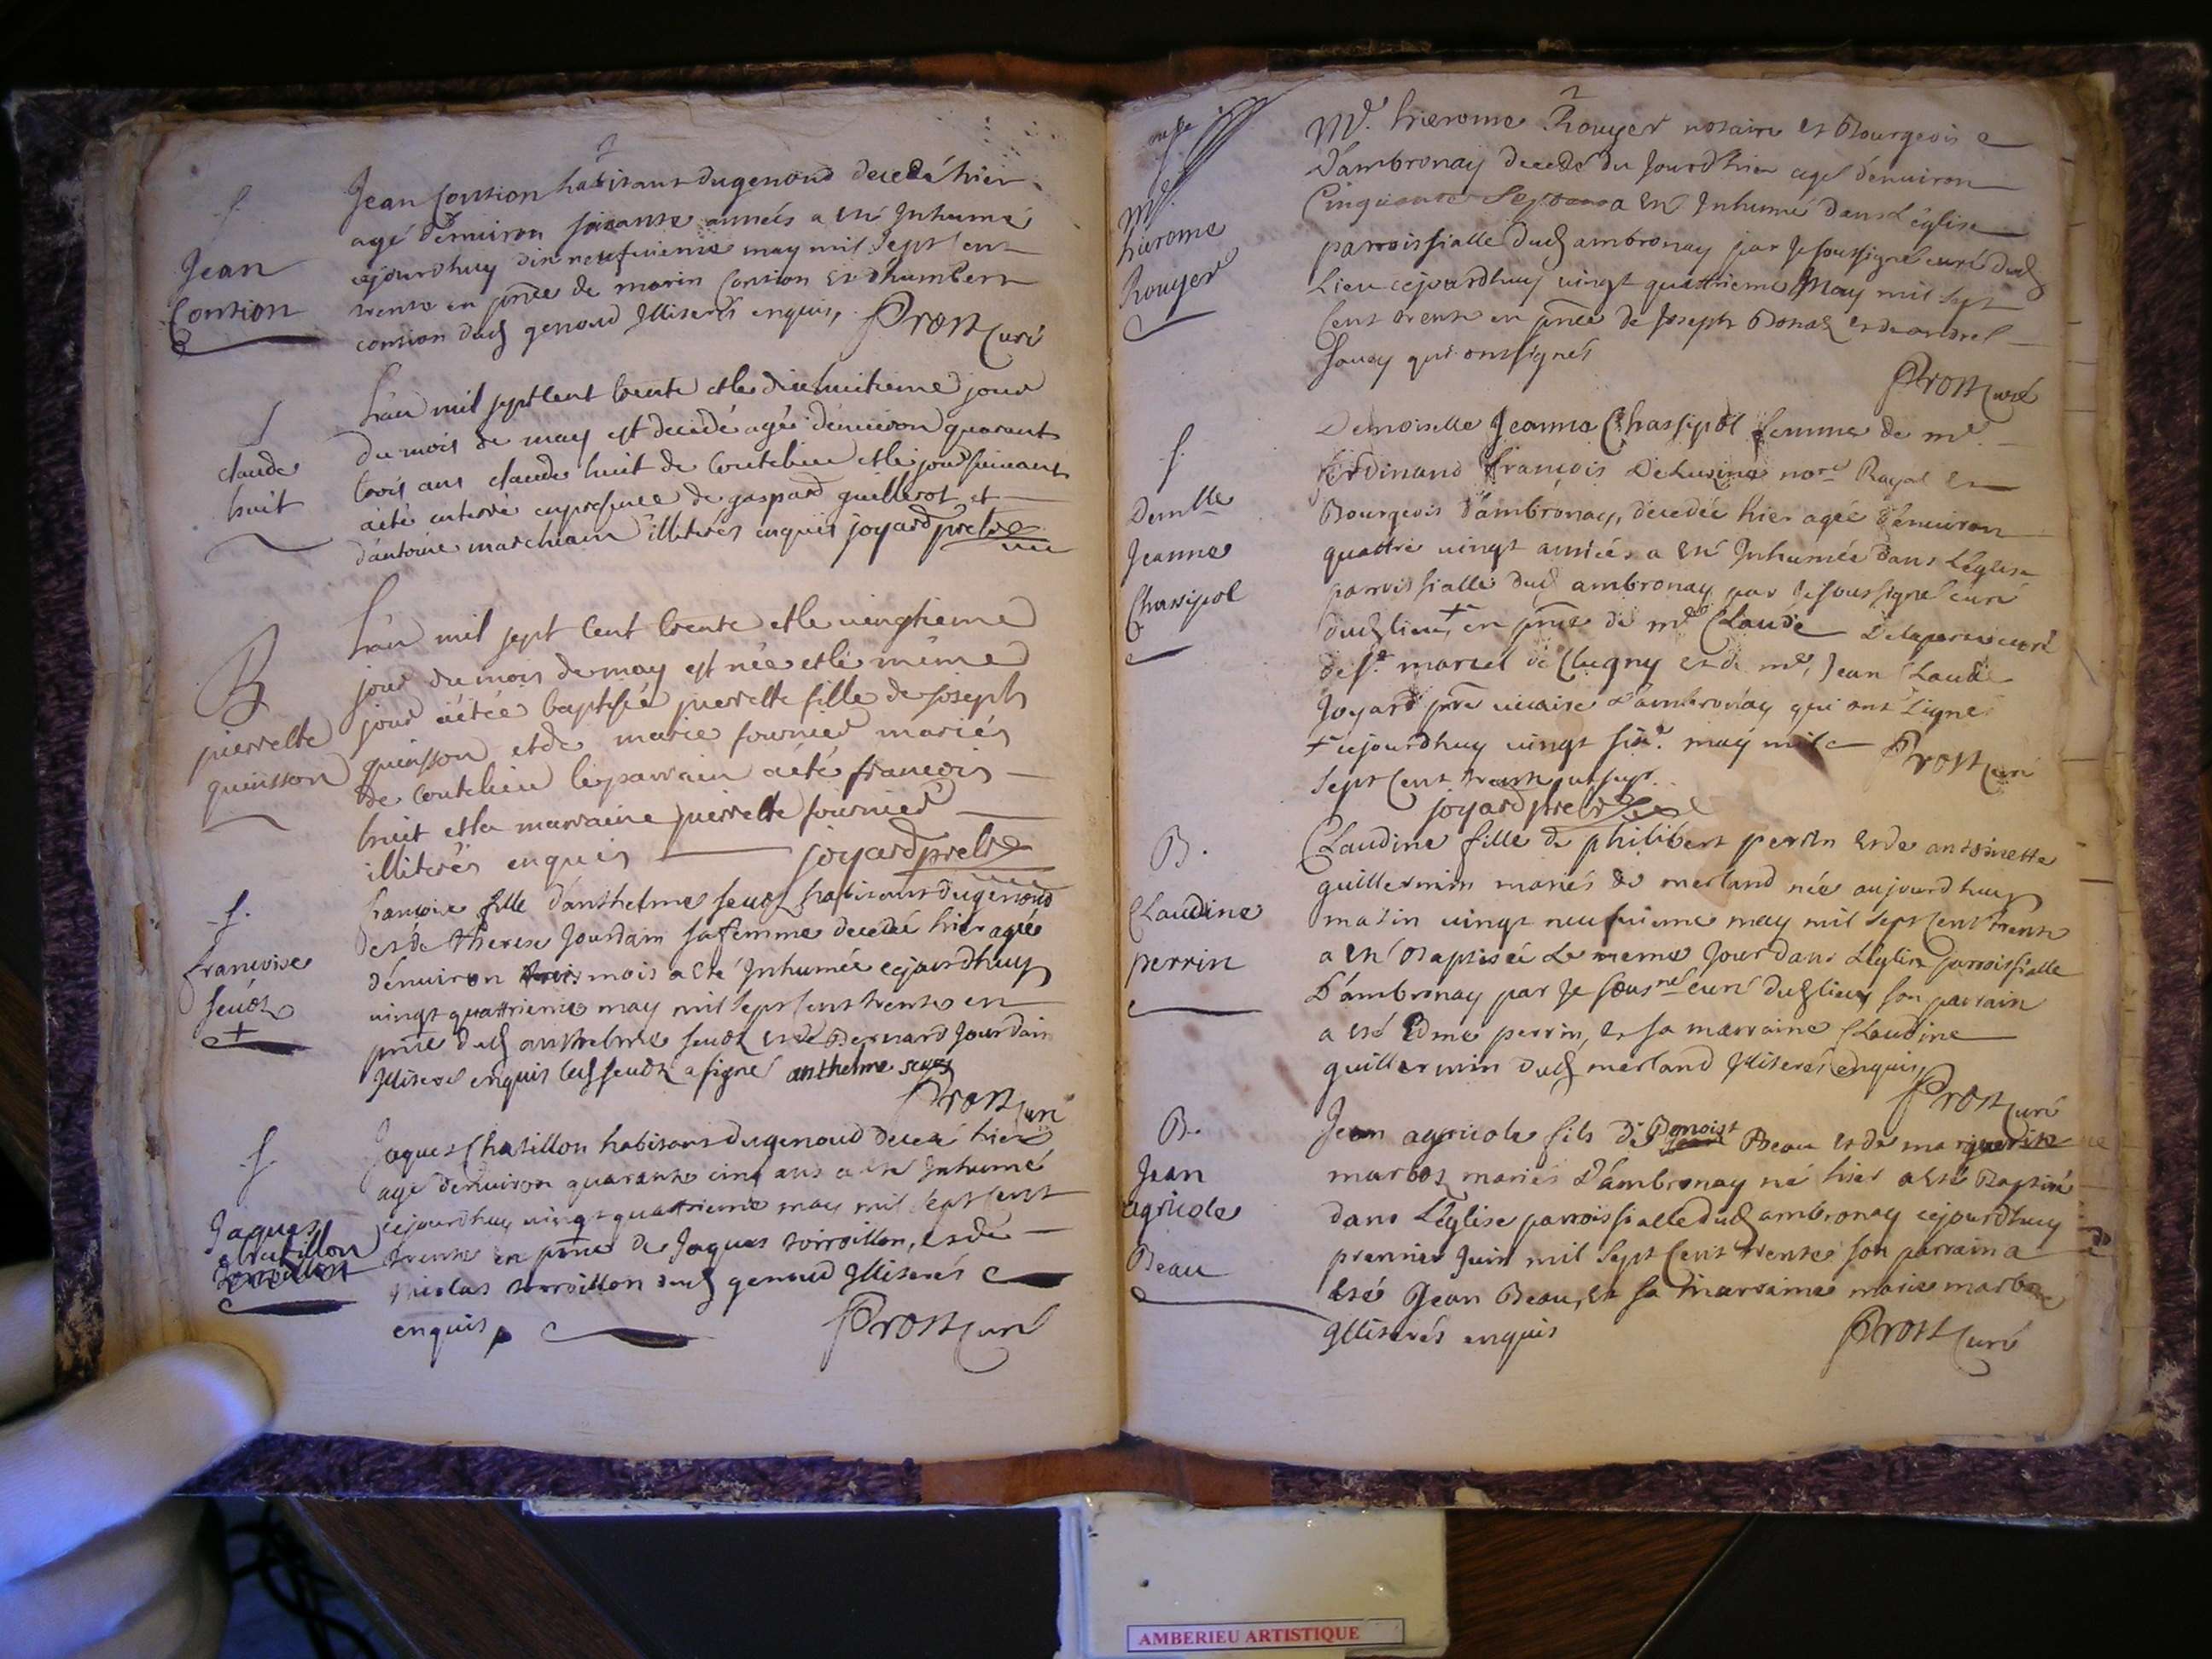 f.
Jean
Contion
Jean Contion habitant du genoud decedé hier
agé d'enuiron soixante anneés a esté Inhumé
cejourdhuy dix neufuieme may mil sept cent
trente en pnce de marin Contion et d'humbert
contion dud genoud Illiterés enquis, Prost curé
f
claude
huit
L'an mil sept cent trente et le dixhuitieme jour
du mois de may est decedé agé d'enuiron quarant
trois ans claude huit de Coutelieu et le jour suiuant
aété enterré en presence de gaspard guillerot et
d'antoine marchiam illiterés enquis joyard pretre
B
pierrette
quinsson
L'an mil sept cent trente et le uingtieme
jour du mois de may est née et le même
jour aétée baptisée pierrette fille de joseph
quinsson et de marie fournier mariés
de Coutelieu le parrain aété françois
huit et la marraine pierrette fournier
illiterés enquis joyard pretre
f.
francoise
seuoz
+
francoise fille d'anthelme seuoz habitant du genoud
et de therese Jourdain sa femme decedeé hier ageé
d'enuiron trois mois a esté Inhumée cejourdhuy
uingt quattrieme may mil sept cent trente en
pnce dud anthelme seuoz et de Bernard Jourdain
Illiteré enquis led seuoz a signé anthelme seuoz
Prost curé
f
Jaques
chatillon
Jaques Chatillon habitant du genoud decedé hier
agé d'enuiron quarante cinq ans a esté Inhumé
cejourdhuy uingt quattrieme may mil sept cent
trente en pnce de Jaques torroillon, et de
nicolas torroillon dud genoud Illiterés
enquis, Prost curé
Mr.
hierome
Rouyer
Mr. hierome Rouyer notaire et Bourgeois
D'ambronay decedé du Jourdhier agé d'enuiron
Cinquante Sept ans a esté Inhumé dans L'église
parroissialle dud ambronay par Je soussigné curé dud
Lieu cejourdhuy uingt quattrieme May mil sept
Cent trente en pnce de Joseph Bonaz et de andrel
qui ont signés
Prost curé
f.
Demlle
Jeanne
Chassipol
Demoiselle Jeanne Chassipol femme de mr.
ferdinand françois Delusine nore Royal et
Bourgeois d'ambronay, decedée hier ageé d'enuiron
quattre uingt anneés a esté Inhumée dans L'église
parroissialle dud ambronay par Je soussigné curé
dud lieu + en pnce de mre Claude curé
de st marcel de Clugny et de mre. Jean Claude
Joyard pre uicaire d'ambronay qui ont signé
+ cejourdhuy uingt sixe. may mil Prost curé
sept cent trente
joyard pretre
B.
Claudine
perrin
Claudine fille de philibert perrin et de antoinette
guillermin mariés de merland née aujourdhuy
matin uingt neufuieme may mil sept cent trente
a esté Baptisée Le meme Jour dans L'églize parroissialle
D'ambronay par Je sousné curé dud lieu, son parrain
a esté Edme perrin, et sa marraine Claudine
guillermin dud merland Illiterés enquis
Prost curé
B.
Jean
agricole
Beau
Jean agricole fils de Benoist Beau et de marguerite
marboz mariés D'ambronay né hier a esté Baptisé
dans L'église parroissialle dud ambronay cejourdhuy
premier Juin mil sept cent trente son parrain a
esté Jean Beau, et sa marraine marie marboz
Illiterés enquis Prost curé
AMBERIEU ARTISTIQUE